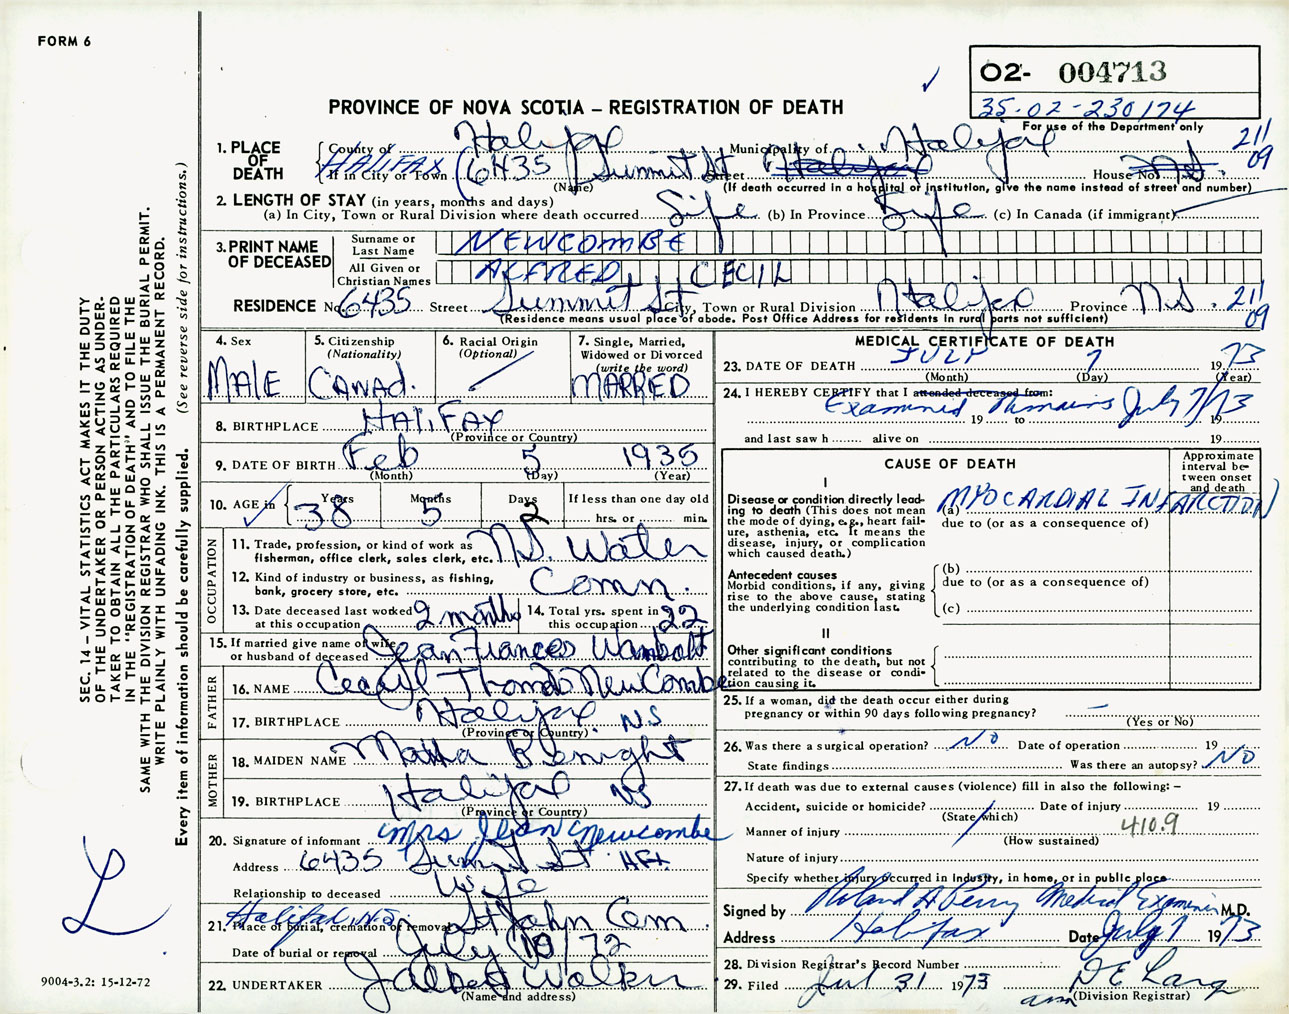 FORM 6
O2- 004713
35-02-230174
For use of the Department only
PROVINCE OF NOVA SCOTIA – REGISTRATION OF DEATH
1. PLACE OF DEATH County of Halifax Municipality of Halifax 211 09
HALIFAX If in City or Town (6435 Summit St Street Halifax House No. N.S.
(Name) (If death occurred in a hospital or institution, give the name instead of street and number)
2. LENGTH OF STAY (in years, months and days)
(a) In City, Town or Rural Division where death occurred Life (b) In Province Life (c) In Canada (if immigrant)
3. PRINT NAME OF DECEASED Surname or Last Name NEWCOMBE
All Given or Christian Names ALFRED CECIL
RESIDENCE No. 6435 Street Summit St City, Town or Rural Division Halifax Province N.S. 211 09
(Residence means usual place of abode. Post Office Address for residents in rural parts not sufficient)
4. Sex MALE
5. Citizenship (Nationality) CANAD.
6. Racial Origin (Optional)
7. Single, Married, Widowed or Divorced (write the word) MARRIED
8. BIRTHPLACE HALIFAX
(Province or Country)
9. DATE OF BIRTH Feb 5 1935
(Month) (Day) (Year)
10. AGE in Years 38 Months 5 Days 2 If less than one day old
hrs. or min.
OCCUPATION
11. Trade, profession, or kind of work as fisherman, office clerk, sales clerk, etc. N.S. Water
12. Kind of industry or business, as fishing, bank, grocery store, etc. Comm.
13. Date deceased last worked at this occupation 2 months 14. Total yrs. spent in this occupation 22
15. If married give name of wife or husband of deceased Jean Frances Wambolt
FATHER
16. NAME Cecyl Thomas NewCombe
17. BIRTHPLACE Halifax. NS
(Province or Country)
MOTHER
18. MAIDEN NAME Benight
19. BIRTHPLACE Halifax NS
(Province or Country)
20. Signature of informant Mrs Jean Newcombe
Address 6435 Summit St Hfx.
Relationship to deceased Wife
21. Place of burial, cremation or removal Halifax, N.S. St John Cem.
Date of burial or removal July 10/72
22. UNDERTAKER J Albert Walker
(Name and address)
MEDICAL CERTIFICATE OF DEATH
23. DATE OF DEATH JULY 7 1973
(Month) (Day) (Year)
24. I HEREBY CERTIFY that I attended deceased from:
Examined Remains July 7/73
19 to 19
and last saw h alive on 19
CAUSE OF DEATH
Approximate interval between onset and death
I
Disease or condition directly leading to death (This does not mean the mode of dying, e.g., heart failure, asthenia, etc. It means the disease, injury, or complication which caused death.)
(a) MYOCARDIAL INFARCTION
due to (or as a consequence of)
Antecedent causes
Morbid conditions, if any, giving rise to the above cause, stating the underlying condition last.
(b)
due to (or as a consequence of)
(c)
II
Other significant conditions contributing to the death, but not related to the disease or condition causing it.
25. If a woman, did the death occur either during pregnancy or within 90 days following pregnancy? –
(Yes or No)
26. Was there a surgical operation? No Date of operation 19
State findings Was there an autopsy? No
27. If death was due to external causes (violence) fill in also the following: –
Accident, suicide or homicide? Date of injury 19
(State which)
Manner of injury 410.9
(How sustained)
Nature of injury
Specify whether injury occurred in Industry, in home, or in public place
Signed by Roland A Perry Medical Examiner M.D.
Address Halifax Date July 7 1973
28. Division Registrar's Record Number
29. Filed Jul 31 1973 D E Lang
(Division Registrar)
SEC. 14 – VITAL STATISTICS ACT MAKES IT THE DUTY
OF THE UNDERTAKER OR PERSON ACTING AS UNDER-
TAKER TO OBTAIN ALL THE PARTICULARS REQUIRED
IN THE "REGISTRATION OF DEATH" AND TO FILE THE
SAME WITH THE DIVISION REGISTRAR WHO SHALL ISSUE THE BURIAL PERMIT.
WRITE PLAINLY WITH UNFADING INK. THIS IS A PERMANENT RECORD.
Every item of information should be carefully supplied. (See reverse side for instructions.)
L
9004-3.2: 15-12-72